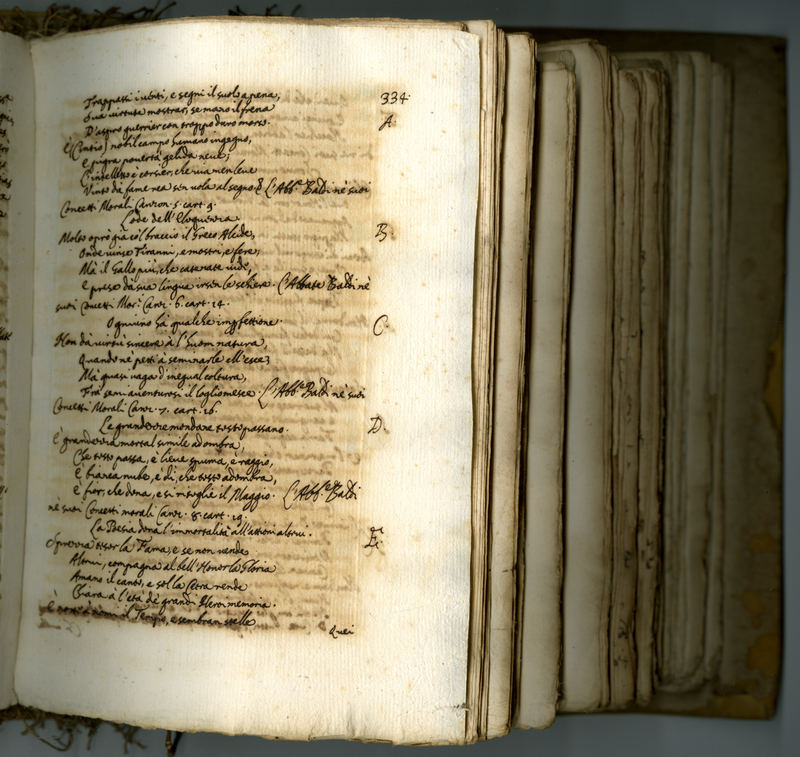 334
Trappassi i venti, e segni il suolo a pena,
Sua virtute mostrar, se mano il frena
D'aspro guerrier con troppo duro morso.
A.
È (Cintio) nobil campo humano ingegno,
E pigra povertà gelida neve;
L'intelletto è corsier, che va men leve
Vinto dà fame nea sen vola al segno. L'Abb.e Baldi nè suoi
Concetti Morali Canzon. 5. cart. 9.
Lode dell'Eloquenza.
B.
Molto oprò già col braccio il Greco Alcide,
Onde vinse Tiranni, e mostri, e fere;
Mà il Gallo più, che catenate vide,
E prese dà sua lingua irsen le schiere. L'Abbate Baldi nè
suoi Concetti Mor.i Canz. 6. cart. 14.
Ogn'uno hà qualche imperfettione.
C.
Non dà virtù sincere à l'huom natura,
Quando nè petti à seminarle ell'esce;
Mà quasi vaga d'inegual coltura,
Frà semi avventurosi il loglio mesce. L'Abb.e Baldi nè suoi
Concetti Morali Canz. 7. cart. 16.
Le grandezze mondane tosto passano.
D.
È grandezza mortal simile ad ombra,
Che tosto passa, è lieve spuma, è raggio,
È bianca nube, è dì, che tosto adombra,
È fior, che dona, e si ritoglie il Maggio. L'Abb.e Baldi
nè suoi Concetti morali Canz. 8. cart. 19.
La Poesia dona l'immortalità all'attioni altrui.
E.
Sprezza tesor la Fama, e se non vende
Altrui, compagna al bell'Honor la Gloria
Amano il canto, e sol la Cetra rende
Chiara à l'età de grandi Heroi memoria.
il Tempio, e sembran stelle
Quei